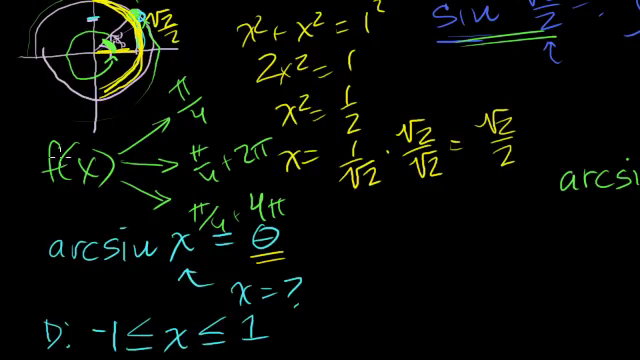 √2/2
x² + x² = 1²
2x² = 1
x² = 1/2
x = 1/√2 · √2/√2 = √2/2
sin √2/2
f(x)
π/4
π/4 + 2π
π/4 + 4π
arcsin x = θ
x = ?
D: -1 ≤ x ≤ 1